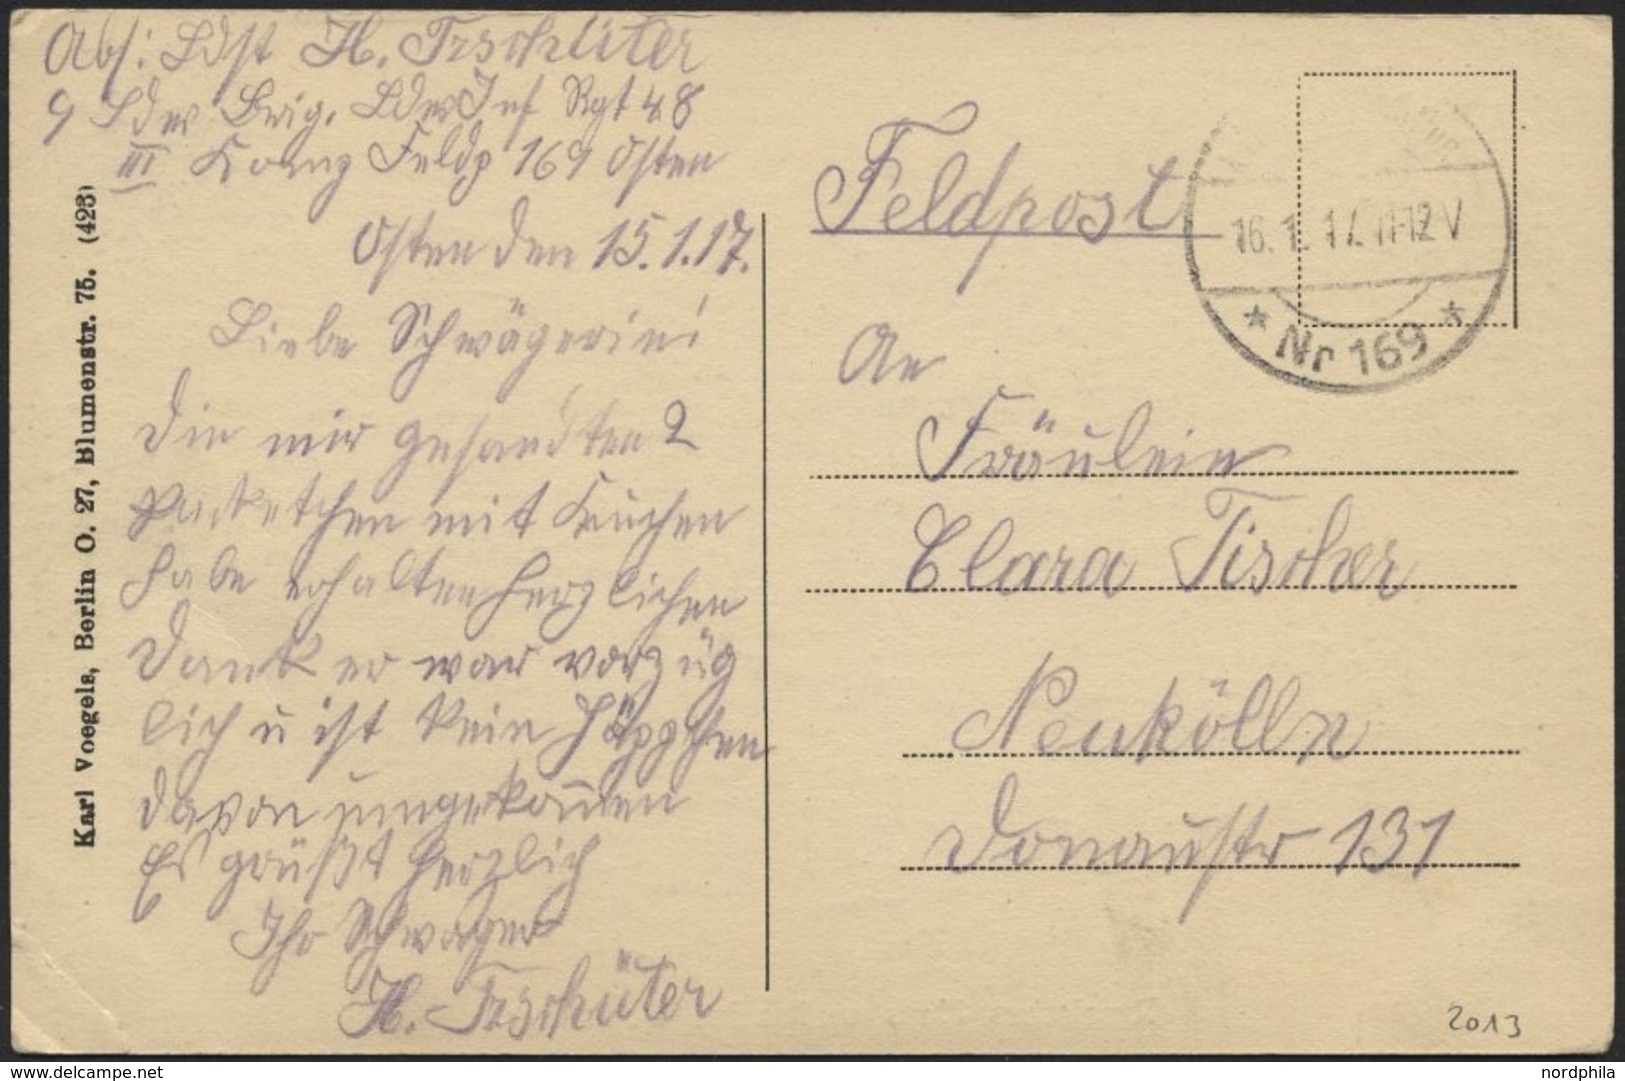 Abs: Ldst H. Trschlüter
9 Lder Brig. Lder Inf Rgt 48
III Korps Feldp 169 Osten
Osten den 15.1.17.
Liebe Schwägerin!
Die mir gesandten 2
Packetchen mit Kuchen
habe erhalten herzlichen
Dank er war vorzüg
lich u ist kein Häppchen
davon umgekom̅en
Es grüßt herzlich
Ihr Schwager
H. Trschüter
Karl Voegels, Berlin O. 27, Blumenstr. 75. (423)
Feldpost
16.1.17. 11-12 V
* Nr 169 *
An
Fräulein
Clara Tischer
Neukölln
Donaustr 131
2013
delcampe.net
nordphila